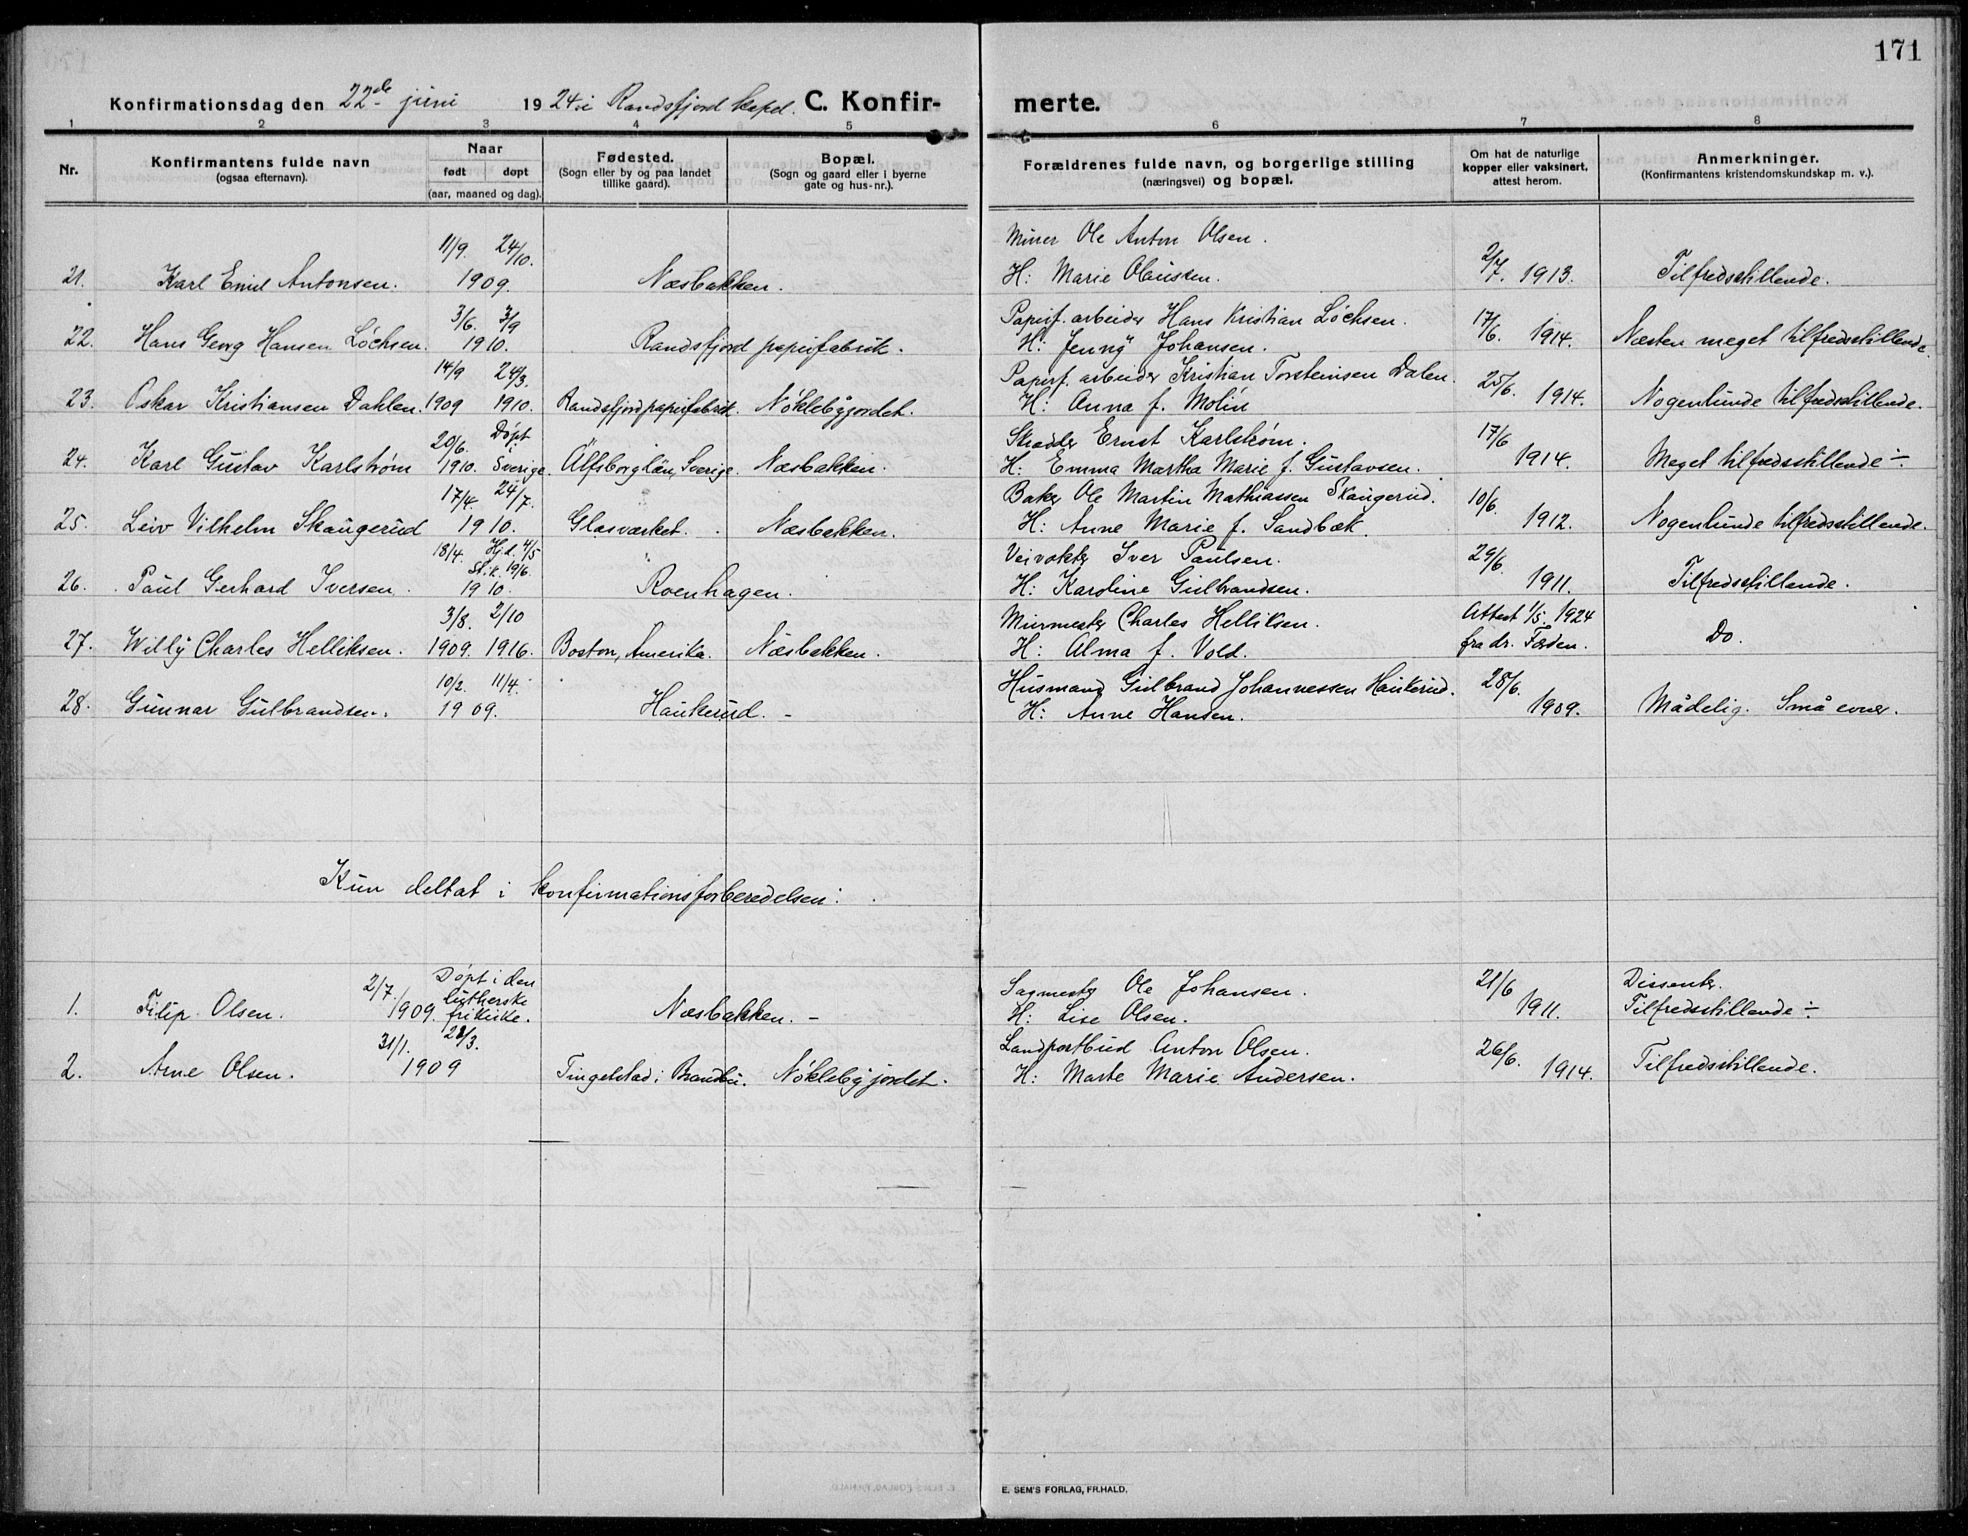 171
Konfirmationsdag den 22de juni 1924 i Randsfjord kapel. C. Konfirmerte.
1 2 3 4 5 6 7 8
Nr.
Konfirmantens fulde navn
(ogsaa efternavn).
Naar
født døpt
(aar, maaned og dag).
Fødested.
(Sogn eller by og paa landet
tillike gaard).
Bopæl.
(Sogn og gaard eller i byerne
gate og hus-nr.).
Forældrenes fulde navn, og borgerlige stilling
(næringsvei) og bopæl.
Om hat de naturlige
kopper eller vaksinert,
attest herom.
Anmerkninger.
(Konfirmantens kristendomskundskap m. v.).
11/9. 24/10. Murer Ole Anton Olsen. 2/7.
21. Karl Emil Antonsen. 1909. Næsbakken. H: Marie Olaussen. 1913. Tilfredsstillende.
3/6. 3/9 Papirf. arbeider Hans Kristian Löchsen. 17/6.
22. Hans Georg Hansen Löchsen. 1910. Randsfjord papirfabrik. H: Jenny Johansen. 1914. Næsten meget tilfredsstillende.
14/9 24/3. Papirf. arbeider Kristian Torsteinsen Dalen. 25/6.
23. Oskar Kristiansen Dahlen. 1909 1910. Randsfjord papirfabrik. Nöklebyjordet. H: Anna f. Molin 1914. Nogenlunde tilfredsstillende.
20/6. Döpt i Skrædder Ernst Karlström. 17/6
24. Karl Gustav Karlström 1910. Sverige. Älfsborg län, Sverige. Næsbakken. H: Emma Martha Marie f. Gustavsen. 1914. Meget tilfredsstillende ÷.
17/4. 24/7. Baker Ole Martin Mathiassen Skaugerud. 10/6.
25. Leiv Vilhelm Skaugerud 1910. Glasværket. Næsbakken. H: Anne Marie f. Sandbæk. 1912. Nogenlunde tilfredsstillende.
18/4. Hj.d. 4/5 Veivokter Iver Paulsen. 29/6.
St. k. 19/6.
26. Paul Gerhard Iversen. 1910. Roenhagen. H: Karoline Gulbrandsen. 1911. Tilfredsstillende.
3/8. 2/10 Murmester Charles Helliksen. Attest 1/5. 1924
27. Willy Charles Helliksen. 1909. 1916. Boston, Amerika. Næsbakken. H: Alma f. Vold. fra dr. Færden. Do.
10/2. 11/4. Husmand Gulbrand Johannessen Haukerud. 25/6.
28. Gunnar Gulbrandsen. 1909. Haukerud. - H: Anne Hansen. 1909. Mådelig. Små evner.
Kun deltat i konfirmationsforberedelsen:
2/7. Döpt i den Sagmester Ole Johansen. 21/6 Dissenter.
1. Filip Olsen. 1909. lutherske frikirke. Næsbakken. - H: Lise Olsen. 1911. Tilfredsstillende ÷
31/1. 21/3. Landpostbud Anton Olsen. 26/6.
2. Arne Olsen. 1909 Tingelstad i Brandbu. Nöklebyjordet. H: Marte Marie Andersen. 1914. Tilfredsstillende.
E. SEM'S FORLAG, FR.HALD.